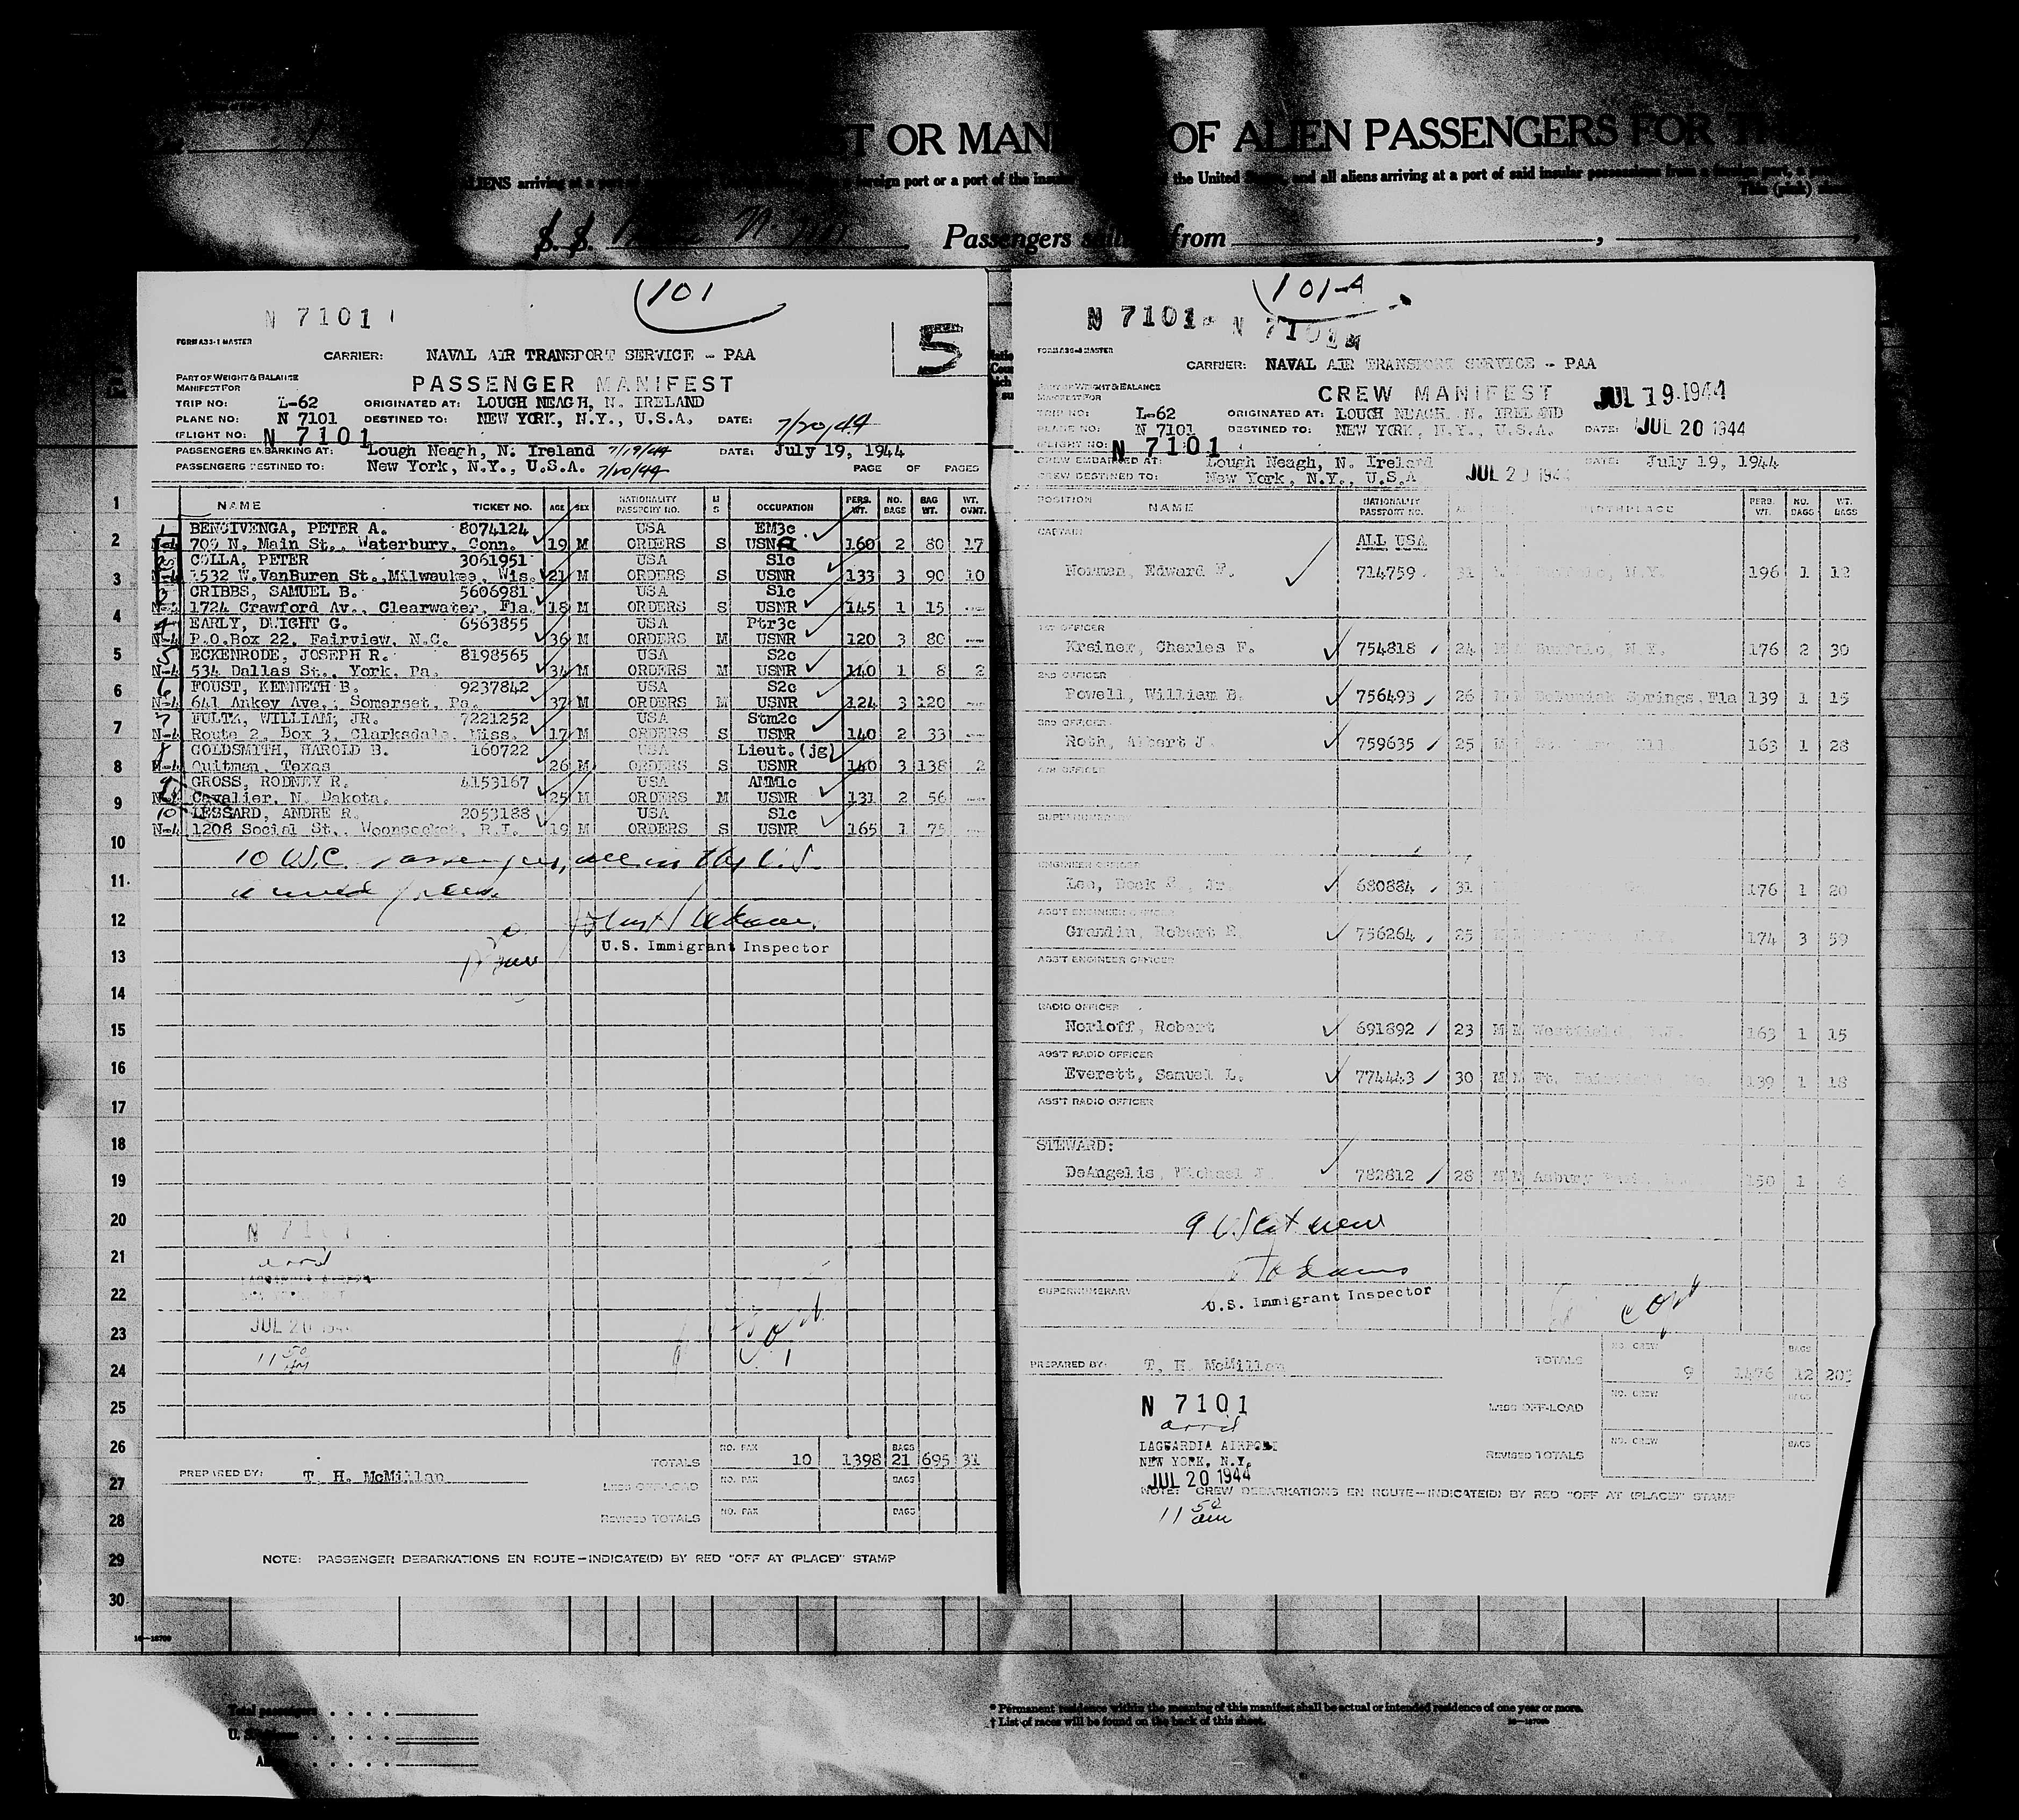 ST OR MAN OF ALIEN PASSENGERS FOR TH
ALIENS arriving at a port of foreign port or a port of the insular the United States, and all aliens arriving at a port of said insular possessions from a foreign port, a
This (pink) sheet
S. S. Passengers sailing from
101
N 7101
5
FORM A33-1 MASTER
CARRIER: NAVAL AIR TRANSPORT SERVICE - PAA
PART OF WEIGHT & BALANCE
MANIFEST FOR
PASSENGER MANIFEST
TRIP NO: L-62 ORIGINATED AT: LOUGH NEAGH, N. IRELAND
PLANE NO: N 7101 DESTINED TO: NEW YORK, N.Y., U.S.A. DATE: 7/20/44
(FLIGHT NO: N 7101
PASSENGERS EMBARKING AT: Lough Neagh, N. Ireland 7/19/44 DATE: July 19, 1944
PASSENGERS DESTINED TO: New York, N.Y., U.S.A. 7/20/44 PAGE OF PAGES
NAME TICKET NO. AGE SEX NATIONALITY PASSPORT NO. M S OCCUPATION PERS. WT. NO. BAGS BAG WT. WT. OVNT.
1 BENCIVENGA, PETER A. 8074124 USA EM3c
709 N. Main St., Waterbury, Conn. 19 M ORDERS S USN 160 2 80 17
2 COLLA, PETER 3061951 USA S1c
1532 W.VanBuren St., Milwaukee, Wis. 21 M ORDERS S USNR 133 3 90 10
3 CRIBBS, SAMUEL B. 5606981 USA S1c
N-4 1724 Crawford Av., Clearwater, Fla. 18 M ORDERS S USNR 145 1 15 ---
4 EARLY, DWIGHT G. 6563855 USA Ptr3c
N-4 P.O.Box 22, Fairview, N.C. 36 M ORDERS M USNR 120 3 80 ---
5 ECKENRODE, JOSEPH R. 8198565 USA S2c
N-4 534 Dallas St., York, Pa. 34 M ORDERS M USNR 140 1 8 2
6 FOUST, KENNETH B. 9237842 USA S2c
N-4 641 Ankey Ave., Somerset, Pa. 37 M ORDERS M USNR 124 3 120 ---
7 FULTZ, WILLIAM, JR. 7221252 USA Stm2c
N-4 Route 2, Box 3, Clarksdale, Miss. 17 M ORDERS S USNR 140 2 33 ---
8 GOLDSMITH, HAROLD B. 160722 USA Lieut.(jg)
N-4 Quitman, Texas 26 M ORDERS S USNR 140 3 138 2
9 GROSS, RODNEY R. 4153167 USA AMM1c
N-4 Cavalier, N. Dakota. 25 M ORDERS M USNR 131 2 56 ---
10 LESSARD, ANDRE R. 2053188 USA S1c
N-4 1208 Social St., Woonsocket, R.I. 19 M ORDERS S USNR 165 1 75 ---
10 U.S.C. passengers,
U.S. Immigrant Inspector
N 7101
arrd
JUL 20 1944
11 50 am
TOTALS NO. PAX 10 1398 BAGS 21 695 31
PREPARED BY: T. H. McMillan
LESS OFF-LOAD NO. PAX BAGS
REVISED TOTALS NO. PAX BAGS
NOTE: PASSENGER DEBARKATIONS EN ROUTE-INDICATE(D) BY RED "OFF AT (PLACE)" STAMP
101-A
N 7101 N 7101
CARRIER: NAVAL AIR TRANSPORT SERVICE - PAA
PART OF WEIGHT & BALANCE
MANIFEST FOR
CREW MANIFEST JUL 19 1944
TRIP NO: L-62 ORIGINATED AT: LOUGH NEAGH, N. IRELAND
PLANE NO: N 7101 DESTINED TO: NEW YORK, N.Y., U.S.A. DATE: JUL 20 1944
(FLIGHT NO: N 7101
CREW EMBARKED AT: Lough Neagh, N. Ireland DATE: July 19, 1944
CREW DESTINED TO: New York, N.Y., U.S.A JUL 20 1944
POSITION NAME NATIONALITY PASSPORT NO. BIRTHPLACE PERS. WT. NO. BAGS WT. BAGS
CAPTAIN ALL USA
Norman, Edward F. 714759 31 N.Y. 196 1 12
1ST OFFICER
Kreiner, Charles F. 754818 24 M Buffalo, N.Y. 176 2 30
2ND OFFICER
Powell, William B. 756493 26 M Springs, Fla 139 1 15
3RD OFFICER
Roth, Albert J. 759635 25 M 163 1 28
4TH OFFICER
SUPERNUMERARY
ENGINEER OFFICER
Lee, Dock , Jr. 680884 31 176 1 20
ASS'T ENGINEER OFFICER
Grandin, Robert 756264 25 174 3 59
ASS'T ENGINEER OFFICER
RADIO OFFICER
Norloff, Robert 691892 23 M Westfield, N.J. 163 1 15
ASS'T RADIO OFFICER
Everett, Samuel L. 774443 30 M Ft. 139 1 18
ASS'T RADIO OFFICER
STEWARD:
DeAngelis, Michael J. 782812 28 M Asbury Park, 150 1 6
Adams
U.S. Immigrant Inspector
SUPERNUMERARY
copy
PREPARED BY: T. H. McMillan TOTALS NO. CREW 9 1476 BAGS 12 203
LESS OFF-LOAD NO. CREW BAGS
REVISED TOTALS NO. CREW BAGS
N 7101
arrd
LAGUARDIA AIRPORT
NEW YORK, N.Y.
JUL 20 1944
NOTE: CREW DEBARKATIONS EN ROUTE-INDICATE(D) BY RED "OFF AT (PLACE)" STAMP
11 50 am
1
2
3
4
5
6
7
8
9
10
11
12
13
14
15
16
17
18
19
20
21
22
23
24
25
26
27
28
29
30
Total passengers
* Permanent residence within the meaning of this manifest shall be actual or intended residence of one year or more.
† List of races will be found on the back of this sheet.